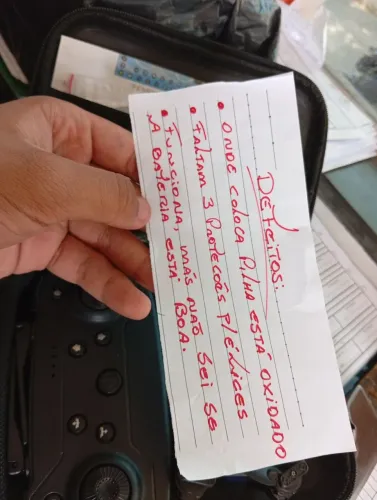 DEFEITOS:
• ONDE COLOCA PILHA ESTÁ OXIDADO
• FALTAM 3 PROTECÕES P/ÉLICES
• FUNCIONA, MÁS NÃO SEI SE
A BATERIA ESTÁ BOA.